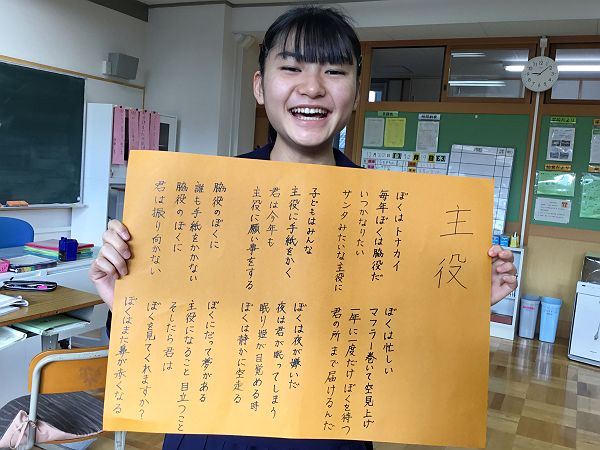 主役
ぼくはトナカイ
毎年ぼくは脇役だ
いつかなりたい
サンタみたいな主役に
子どもはみんな
主役に手紙をかく
君は今年も
主役に願い事をする
脇役のぼくに
誰も手紙をかかない
脇役のぼくに
君は振り向かない
ぼくは忙しい
マフラー巻いて空見上げ
一年に一度だけぼくを待つ
君の所まで届けるんだ
ぼくは夜が嫌いだ
夜は君が眠ってしまう
眠り姫が目覚める時
ぼくは静かに空走る
ぼくにだって夢がある
主役になること目立つこと
そしたら君は
ぼくを見てくれますか?
ぼくはまた鼻が赤くなる